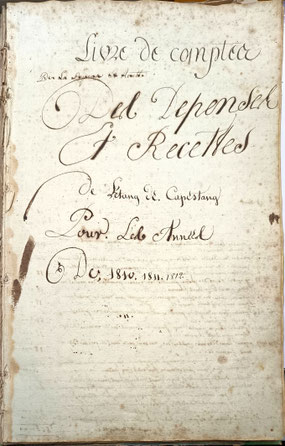 Livre de comptes
Des Depenses
Et Recettes
De Létang de Capestang
Pour Les Années
De, 1810. 1811. 1812